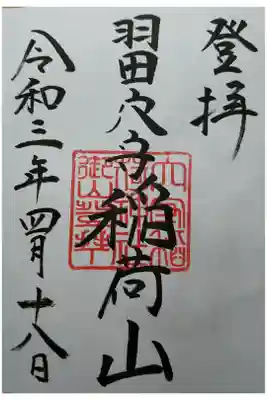 登拝
羽田穴守稲荷山
令和三年四月十八日